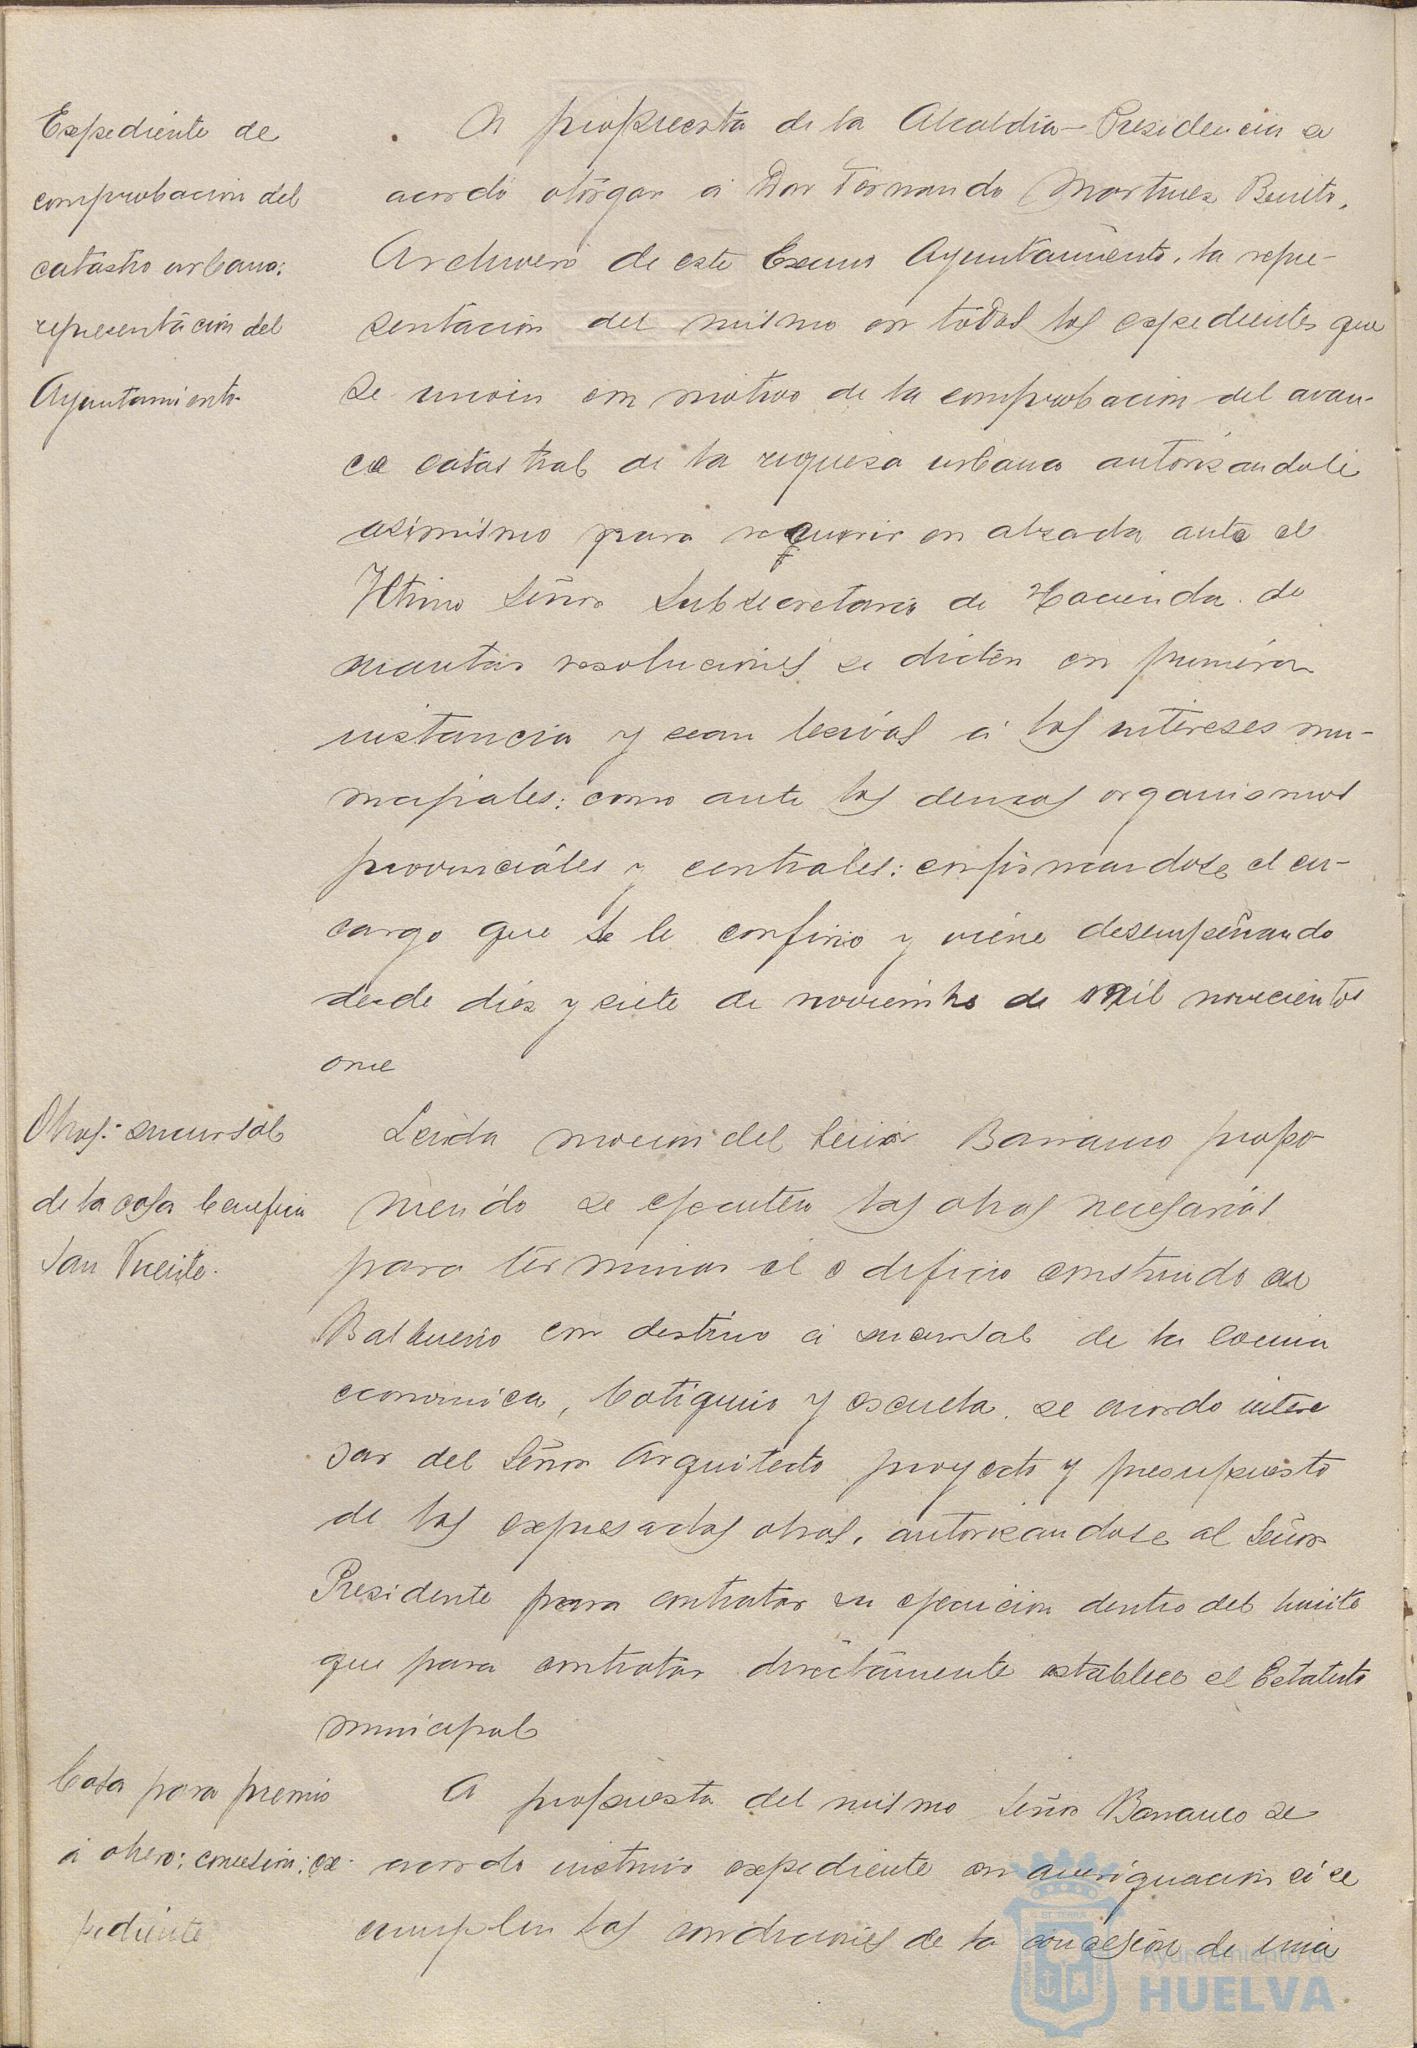 Expediente de
comprobacion del
catastro urbano:
representación del
Ayuntamiento
A propuesta de la Alcaldia-Presidencia se
acordó otorgar á Don Fernando Martinez Benito,
Archivero de este Excmo Ayuntamiento, la repre-
sentación del mismo en todos los expedientes que
se incoen con motivo de la comprobacion del avan-
ce catastral de la riqueza urbana autorizandole
asimismo para requerir en alzada ante el
Iltmo Señor Subsecretario de Hacienda de
cuantas resoluciones se dicten en primera
instancia y sean lesivas á los intereses mu-
nicipales: como ante los demas organismos
provinciales y centrales: confirmandose el en-
cargo que se le confirio y viene desempeñando
desde diez y siete de noviembre de mil novecientos
once
Obras: sucursal
de la casa benefica
San Vicente.
Leida mocion del Señor Barranco propo-
niendo se ejecuten las obras necesarias
para terminar el edificio construido en
Balbueno con destino á sucursal de la Cocina
economica, botiquin y escuela, se acordo intere
sar del Señor Arquitecto proyecto y presupuesto
de las expresadas obras, autorizandose al Señor
Presidente para contratar su ejecucion dentro del limite
que para contratar directamente establece el Estatuto
municipal
Casa para premio
á obrero: concesion: ex-
pediente
A propuesta del mismo Señor Barranco se
acordo instruir expediente en averiguacion si se
cumplen las condiciones de la concesión de una
Ayuntamiento de
HUELVA